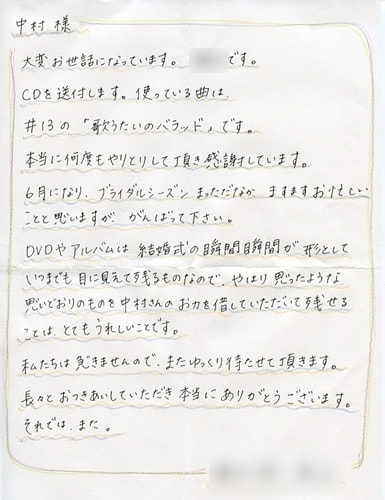 中村様
大変お世話になっています。 です。
CDを送付します。使っている曲は
#13の「歌うたいのバラッド」です。
本当に何度もやりとりして頂き感謝しています。
6月になり、ブライダルシーズンまっただなか、ますますお忙しい
ことと思いますが がんばって下さい。
DVDやアルバムは 結婚式の瞬間瞬間が 形として
いつまでも目に見えて残るものなので、やはり思ったような
思いどおりのものを中村さんのお力を借していただいて残せる
ことは、とてもうれしいことです。
私たちは急ぎませんので、またゆっくり待たせて頂きます。
長々とおつきあいしていただき本当にありがとうございます。
それでは、また。